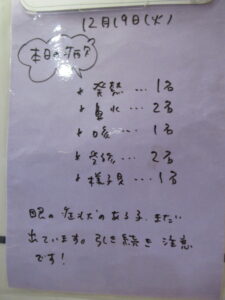 12月19日(火)
本日の
・発熱 … 1名
・鼻水 … 2名
・咳 … 1名
… 2名
・様子見 … 1名
眼の症状のある子、まだ
出ています。引き続き注意
です!